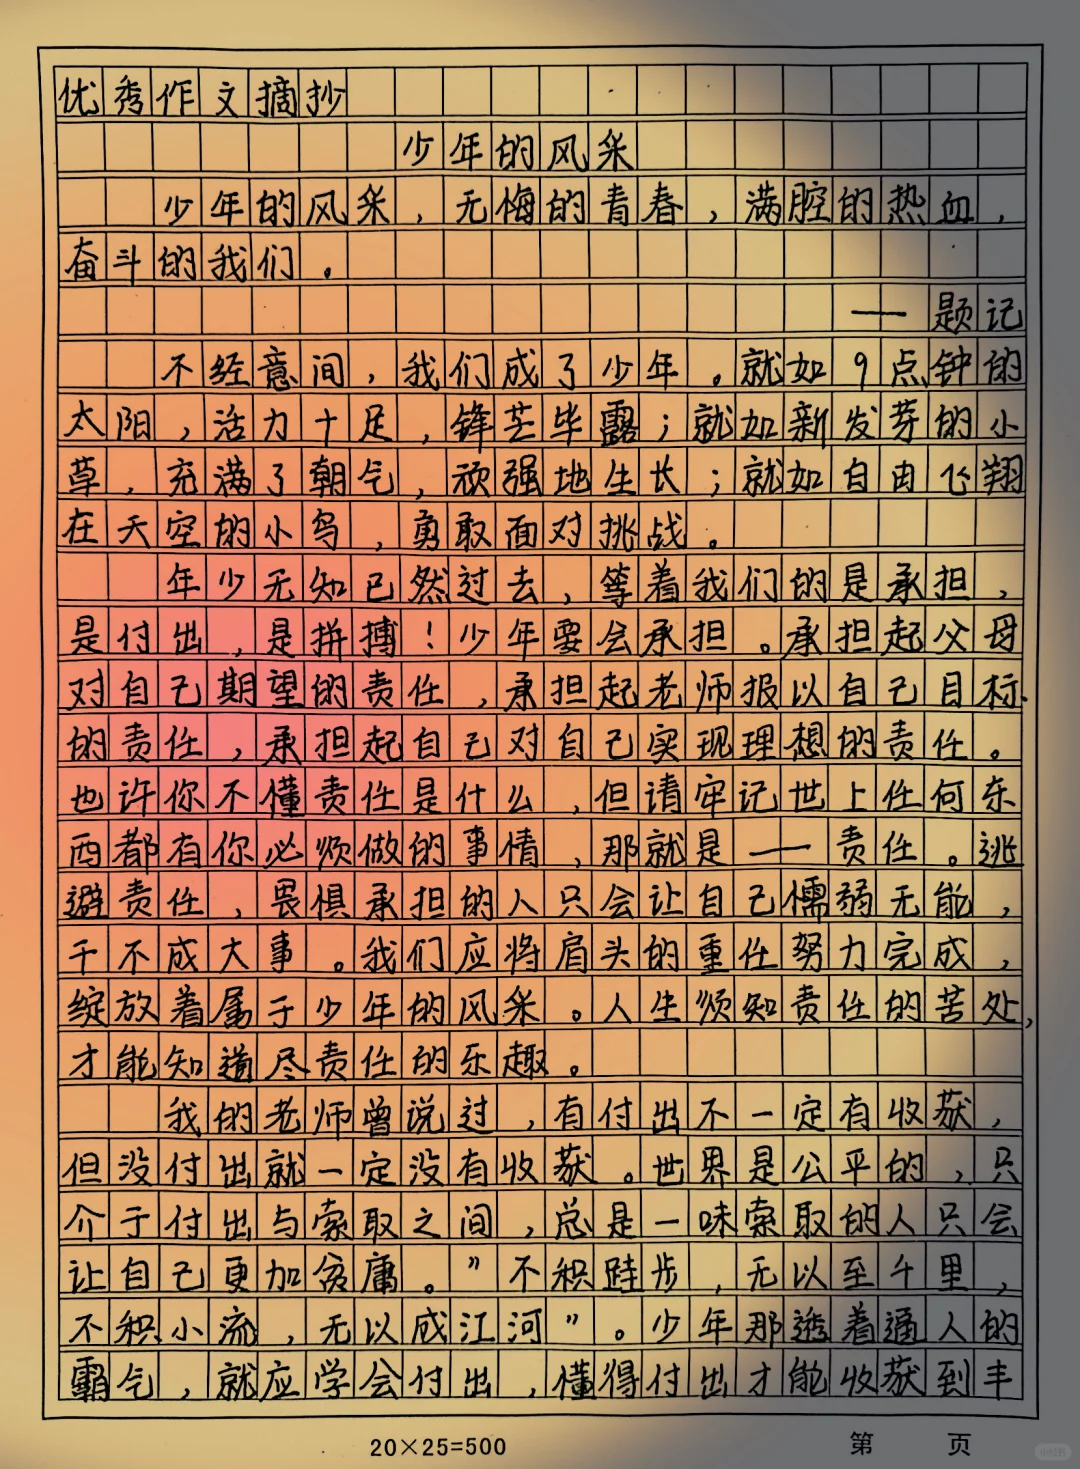 优秀作文摘抄
少年的风采
少年的风采，无悔的青春，满腔的热血，
奋斗的我们。
——题记
不经意间，我们成了少年。就如9点钟的
太阳，活力十足，锋芒毕露；就如新发芽的小
草，充满了朝气，顽强地生长；就如自由飞翔
在天空的小鸟，勇敢面对挑战。
年少无知已然过去，等着我们的是承担，
是付出，是拼搏！少年要会承担。承担起父母
对自己期望的责任，承担起老师报以自己目标
的责任，承担起自己对自己实现理想的责任。
也许你不懂责任是什么，但请牢记世上任何东
西都有你必须做的事情，那就是——责任。逃
避责任，畏惧承担的人只会让自己懦弱无能，
干不成大事。我们应将肩头的重任努力完成，
绽放着属于少年的风采。人生须知责任的苦处，
才能知道尽责任的乐趣。
我的老师曾说过，有付出不一定有收获，
但没付出就一定没有收获。世界是公平的，只
介于付出与索取之间，总是一味索取的人只会
让自己更加贪庸。”不积跬步，无以至千里，
不积小流，无以成江河”。少年那透着逼人的
霸气，就应学会付出，懂得付出才能收获到丰
20×25=500
第 页